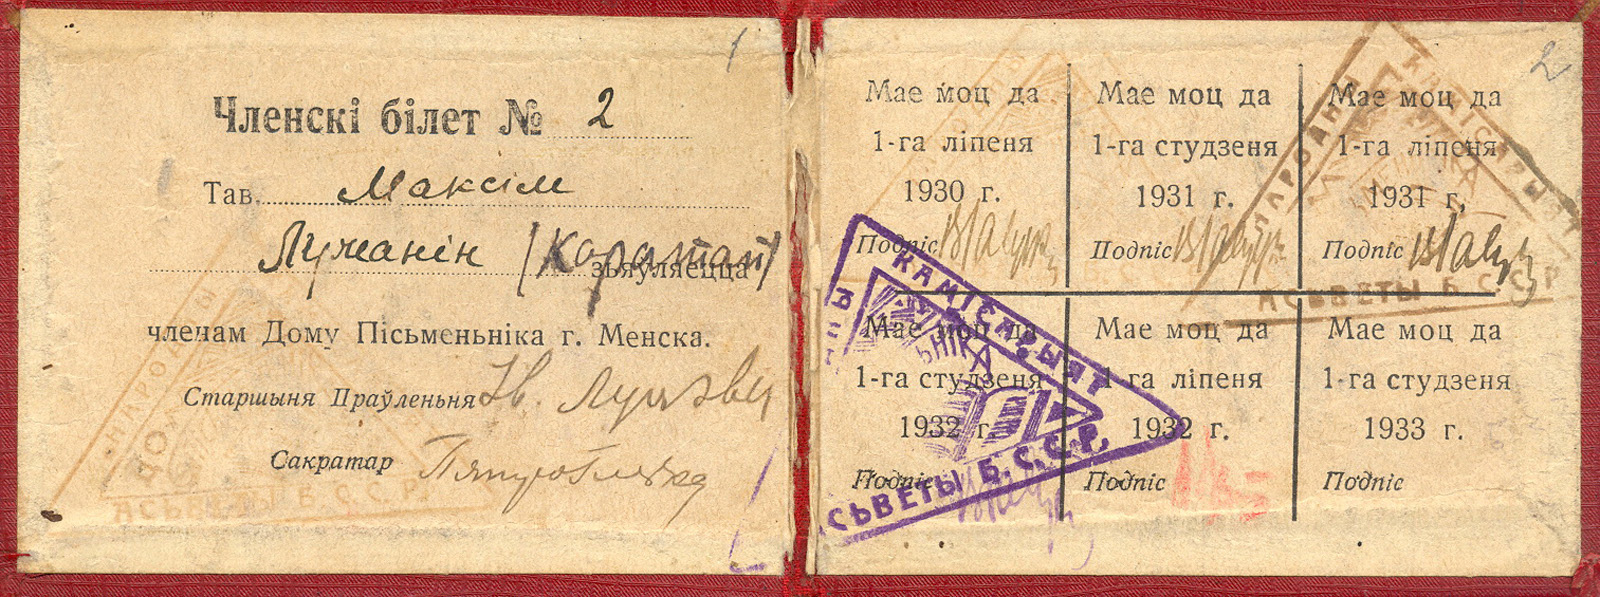 1
Членскі білет № 2
Тав. Максім
Лужанін (Каратай)
зьяўляецца
членам Дому Пісьменьніка г. Менска.
Старшыня Праўленьня
Сакратар
НАРОДНЫ
АСЬВЕТЫ Б.С.С.Р.
2
Мае моц да
1-га ліпеня
1930 г.
Подпіс
Мае моц да
1-га студзеня
1931 г.
Подпіс
Мае моц да
1-га ліпеня
1931 г.
Подпіс
Мае моц да
1-га студзеня
1932 г.
Подпіс
Мае моц да
1-га ліпеня
1932 г.
Подпіс
Мае моц да
1-га студзеня
1933 г.
Подпіс
НАРОДНЫ
КАМІСАРЫЯТ
АСЬВЕТЫ Б.С.С.Р.
КАМІСАРЫЯТ
АСЬВЕТЫ Б.С.С.Р.